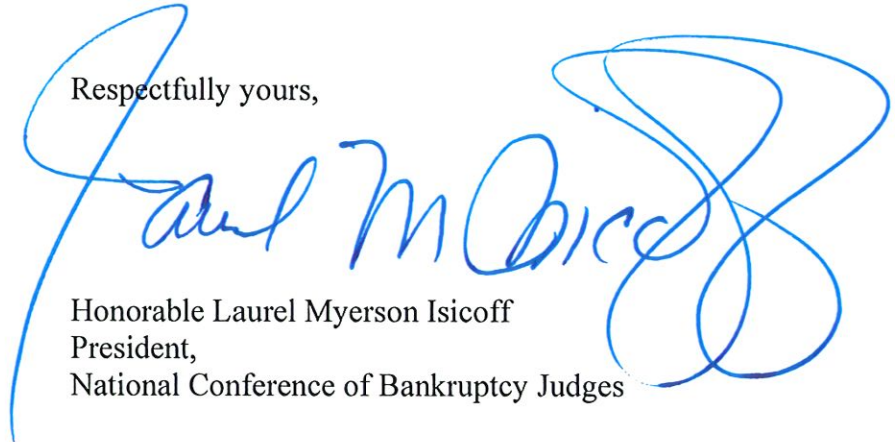 Respectfully yours,
Laurel M Isicoff
Honorable Laurel Myerson Isicoff
President,
National Conference of Bankruptcy Judges